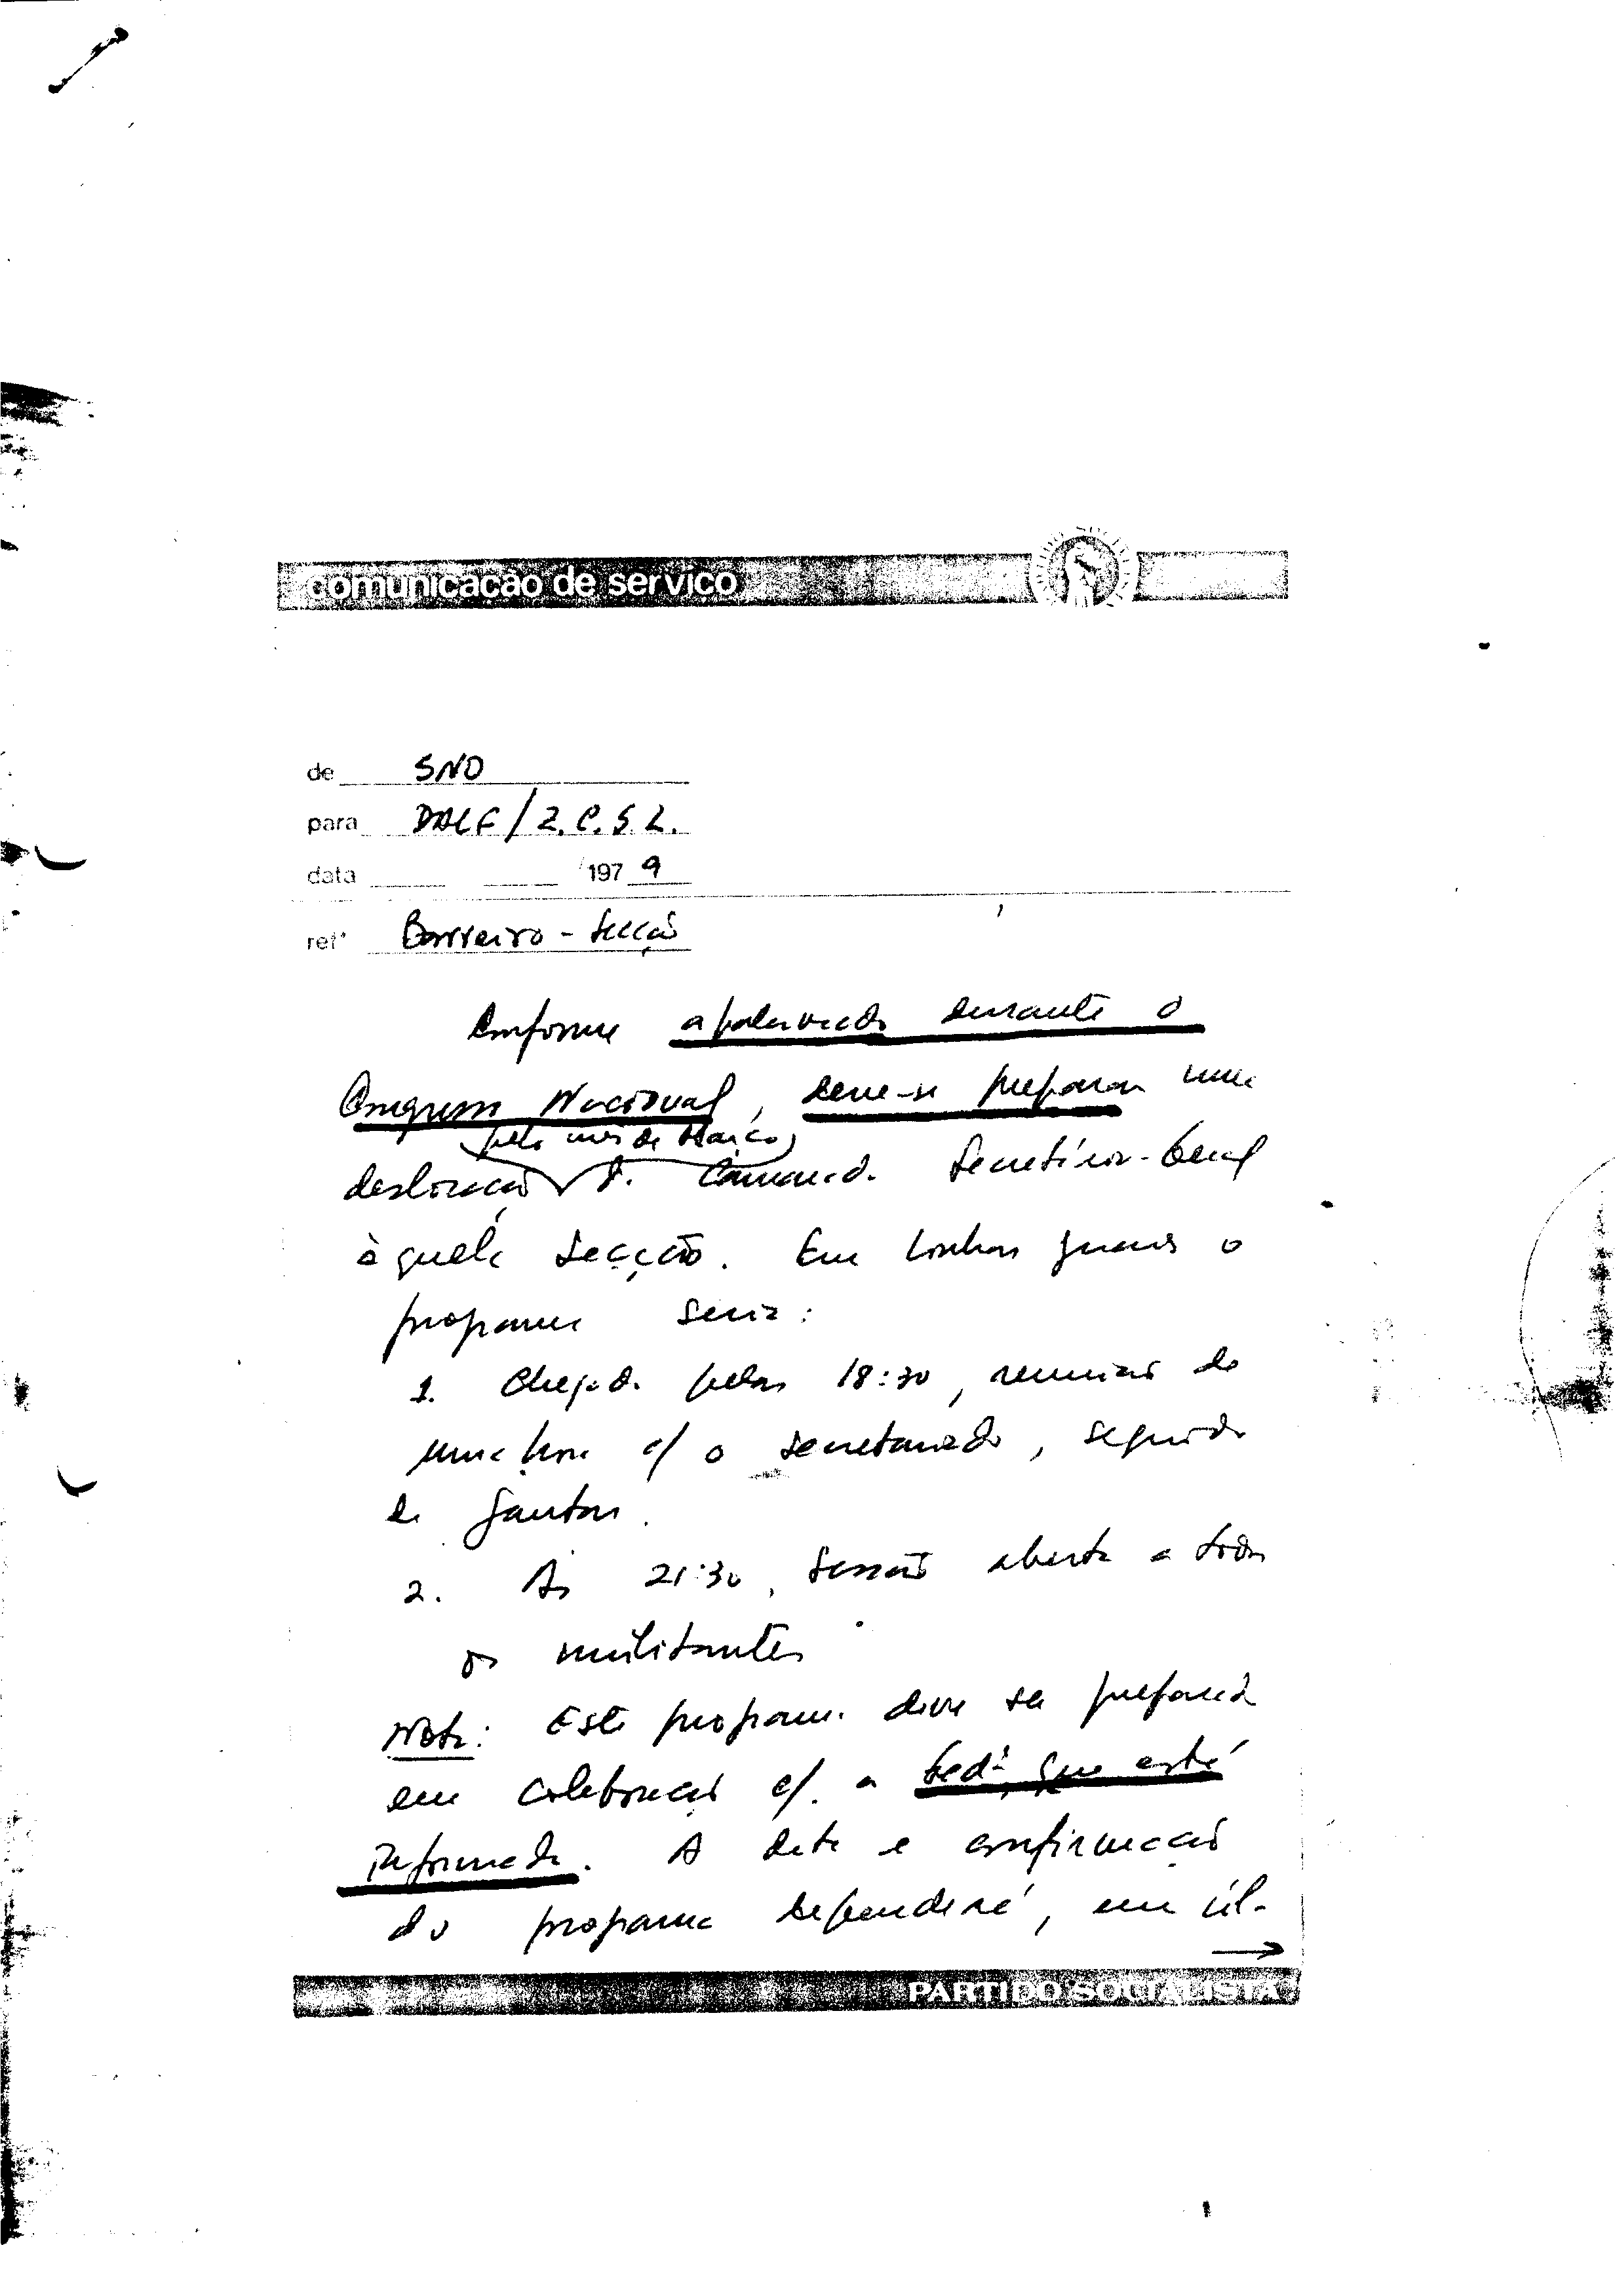 comunicação de serviço
de SNO
para DALF/Z.C.S.L.
data 1979
refª Barreiro - Secção
Conforme apalavrado durante o
Congresso Nacional, deve-se preparar uma
pelo mês de Março
deslocação do Camarada Secretário-Geral
àquela Secção. Em linhas gerais o
programa seria:
1. Chegada pelas 18:30, reunião de
uma hora c/ o secretariado, seguida
de jantar.
2. Às 21:30, sessão aberta a todos
os militantes
Nota: Este programa deve ser preparado
em colaboração c/. a que está
informada. A data e confirmação
do programa dependerá, em úl-
PARTIDO SOCIALISTA